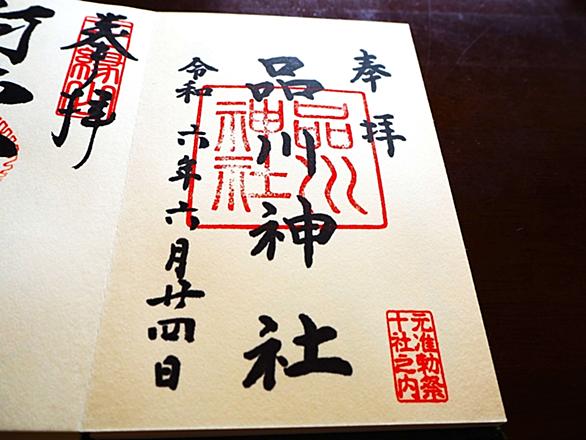 奉拝
品川神社
品川神社
令和六年六月廿四日
元准勅祭
十社之内
奉拝